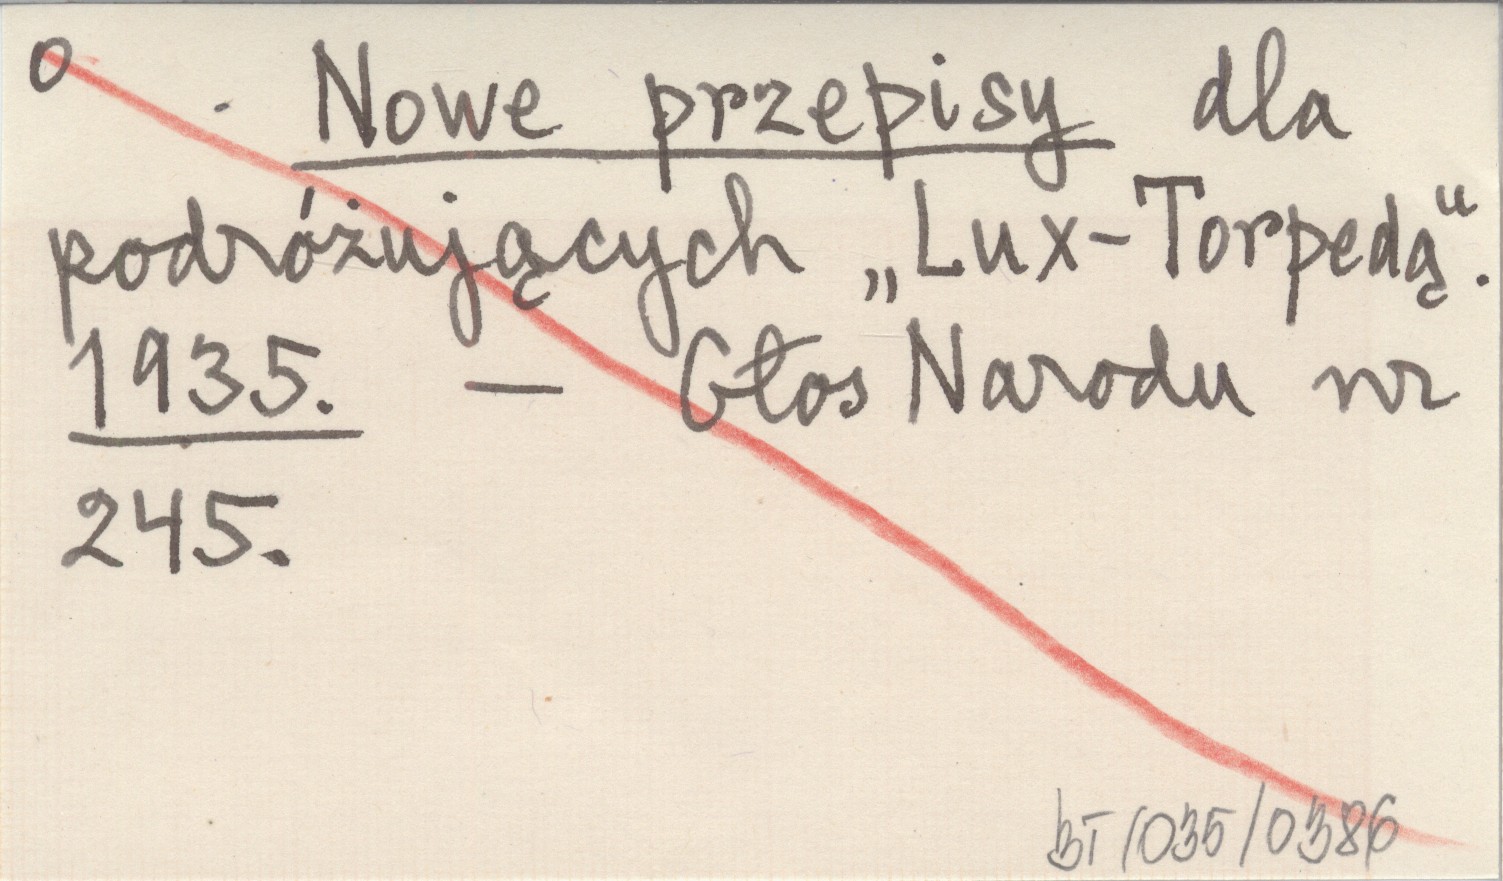 o
Nowe przepisy dla
podróżujących „Lux-Torpedą".
1935. — Głos Narodu nr
245.
BT/035/0386